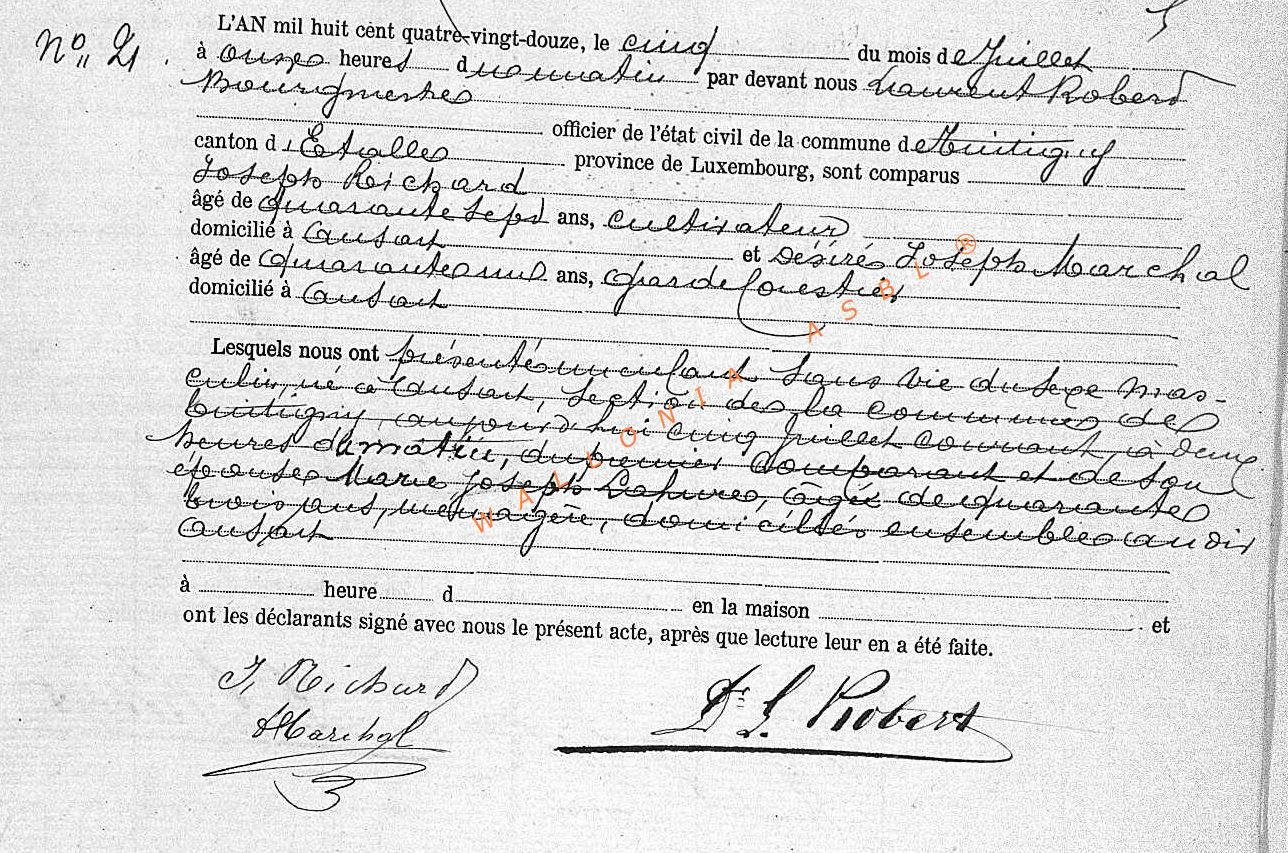 No 21
L'AN mil huit cent quatre-vingt-douze, le cinq du mois de Juillet
à onze heures du matin par devant nous Laurent Robert
Bourgmestre
officier de l'état civil de la commune de Huitigny
canton d'Etalle province de Luxembourg, sont comparus
Joseph Richard
âgé de quarante sept ans, cultivateur
domicilié à Ansart et Désiré Joseph Marchal
âgé de quarante un ans, garde forestier
domicilié à Ansart
Lesquels nous ont présenté un enfant sans vie du sexe mas-
culin, né à Ansart, section de la commune de
aujourd'hui cinq Juillet courant, à deux
heures du matin, du premier comparant et de son
épouse Marie Joseph âgée de quarante
trois ans, ménagère, domiciliés ensemble au dit
Ansart
à heure d en la maison et
ont les déclarants signé avec nous le présent acte, après que lecture leur en a été faite.
J. Richard
Marchal
Dr L. Robert
WALLONIA ASBL ®